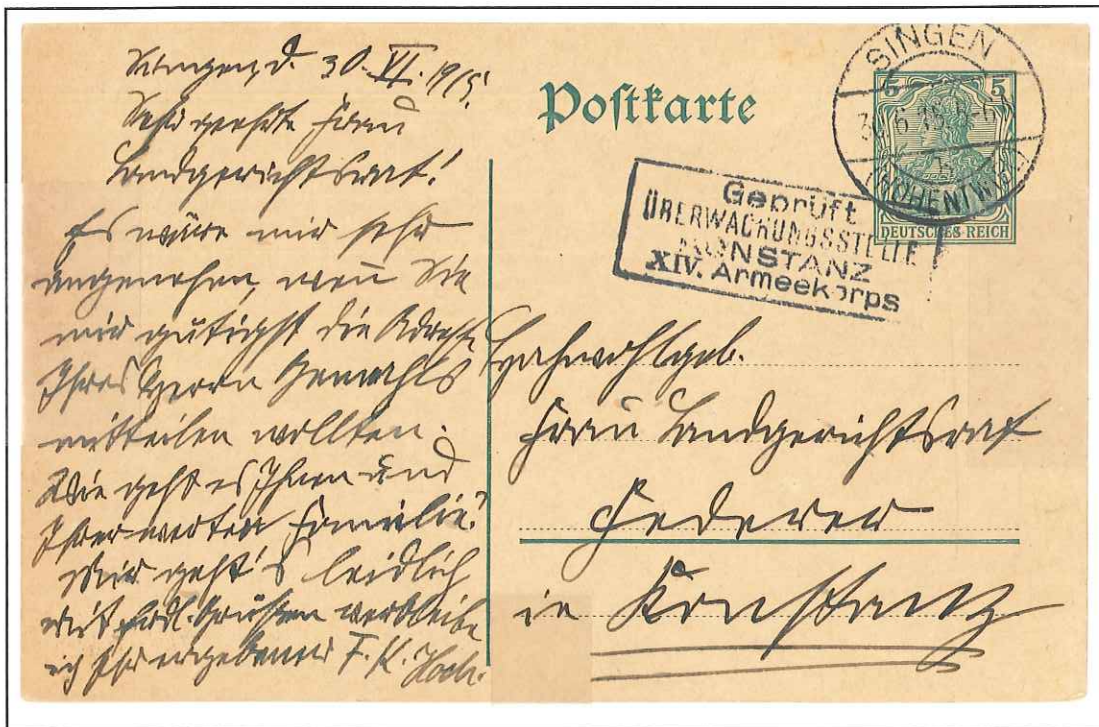 Singen, d. 30. VI. 1915.
Sehr geehrte Frau
Landgerichtsrat!
Es wäre mir sehr
angenehm, wenn Sie
mir gütigst die Adresse
Ihres Herrn Gemahls
mitteilen wollten.
Wie geht es Ihnen und
Ihrer werten Familie?
Mir geht's leidlich
Mit frdl. Grüßen verbleibe
ich Ihr ergebener F. K.
Postkarte
SINGEN
(HOHENTWIEL)
5 5
DEUTSCHES REICH
Geprüft
ÜBERWACHUNGSSTELLE
KONSTANZ
XIV. Armeekorps
Hochwohlgeb.
Frau Landgerichtsrat
Federer
in Konstanz